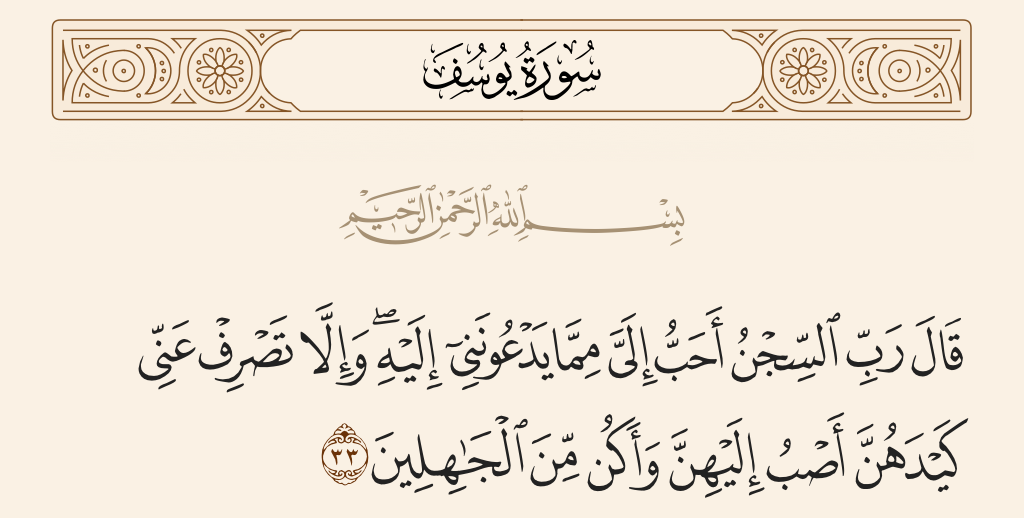 سُورَةُ يُوسُفَ
بِسْمِ ٱللَّهِ ٱلرَّحْمَٰنِ ٱلرَّحِيمِ
قَالَ رَبِّ ٱلسِّجْنُ أَحَبُّ إِلَىَّ مِمَّا يَدْعُونَنِىٓ إِلَيْهِ ۖ وَإِلَّا تَصْرِفْ عَنِّى
كَيْدَهُنَّ أَصْبُ إِلَيْهِنَّ وَأَكُن مِّنَ ٱلْجَـٰهِلِينَ ٣٣